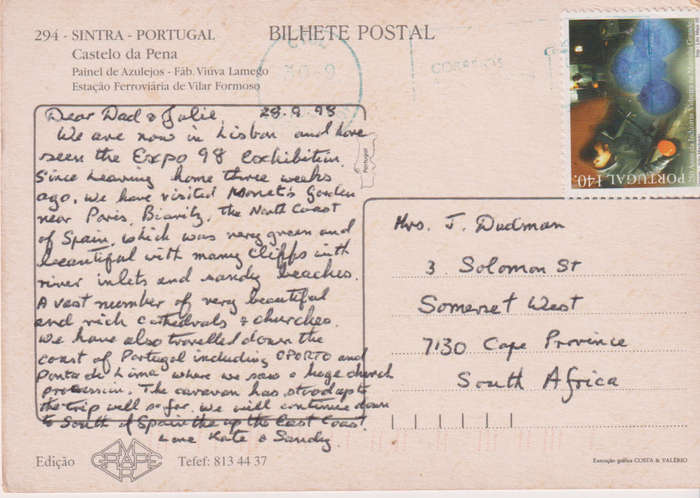 294 - SINTRA - PORTUGAL
Castelo da Pena
Painel de Azulejos - Fáb. Viúva Lamego
Estação Ferroviária de Vilar Formoso
BILHETE POSTAL
CORREIOS
PORTUGAL 140.
Portugal
Dear Dad & Julie 28.9.98
We are now in Lisbon and have
seen the Expo 98 exhibition.
Since leaving home three weeks
ago, we have visited Monet's Garden
near Paris, Biaritz, the North Coast
of Spain, which was very green and
beautiful with many cliffs with
river inlets and sandy beaches.
A vast number of very beautiful
and rich cathedrals & churches.
We have also travelled down the
coast of Portugal including OPORTO and
Ponta de Lima where we saw a huge church
procession. The caravan has stood up to
the trip well so far. We will continue down
to South of Spain the up the East Coast.
love Kate & Sandy
Mrs. J. Dudman
3 Solomon St
Somerset West
7130 Cape Province
South Africa
Edição
GRAFER
Telef: 813 44 37
Execução gráfica COSTA & VALÉRIO